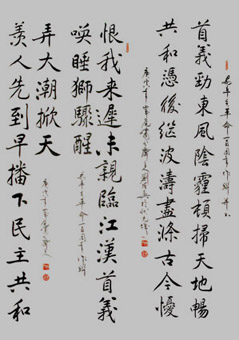 首義勁東風陰霾頓掃天地暢
共和憑後繼波濤盡滌古今憂
恨我來遲未親臨江漢首義
喚睡獅驟醒
辛亥革命一百周年作聯
羨人先到早播下民主共和
弄大潮掀天